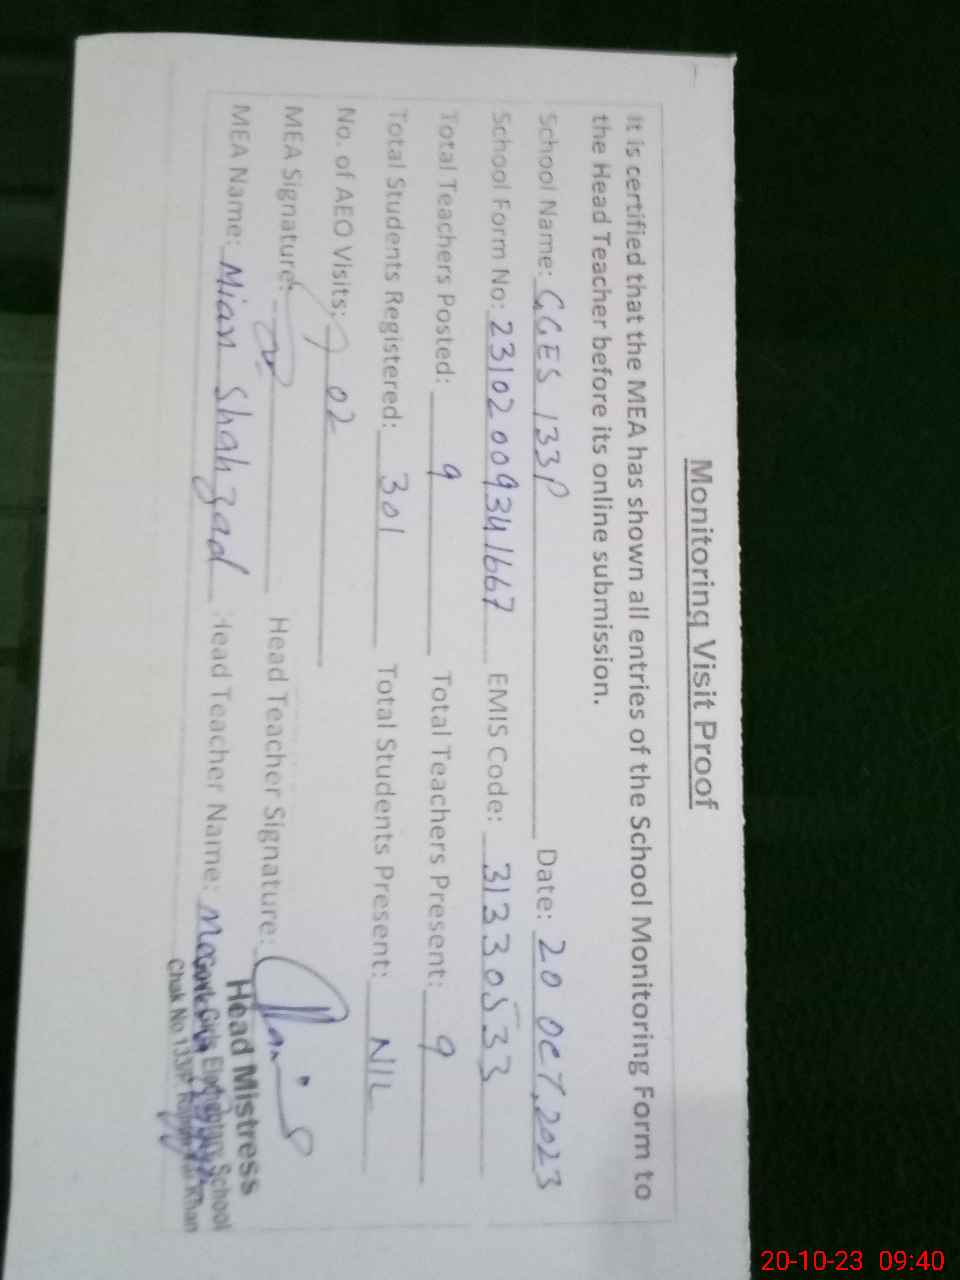 Monitoring Visit Proof
It is certified that the MEA has shown all entries of the School Monitoring Form to
the Head Teacher before its online submission.
School Name: GGES 133P Date: 20 OCT, 2023
School Form No: 23102009341667 EMIS Code: 31330533
Total Teachers Posted: 9 Total Teachers Present: 9
Total Students Registered: 301 Total Students Present: NIL
No. of AEO Visits: 02
MEA Signature: Head Teacher Signature:
MEA Name: Mian Shahzad Head Teacher Name:
Head Mistress
Girls Elementary School
Chak No 133/P Khan
20-10-23 09:40